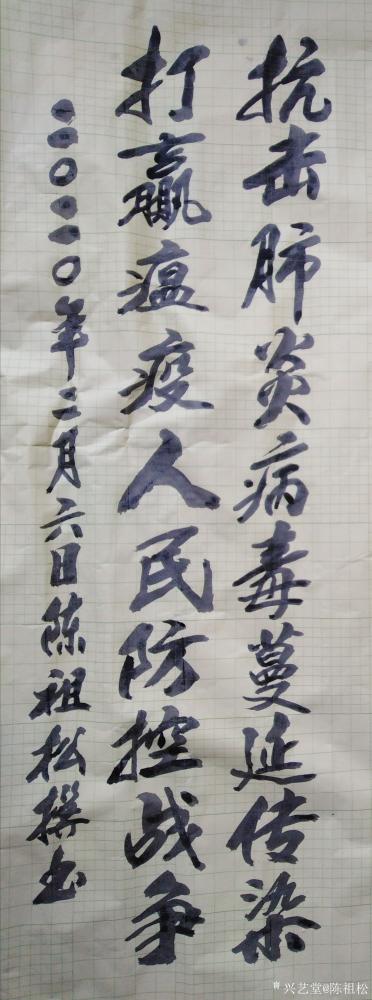 抗击肺炎病毒蔓延传染
打赢瘟疫人民防控战争
二〇二〇年二月六日陈祖松撰书
兴艺堂@陈祖松